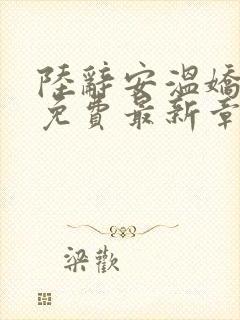 陸辭安溫嬌
免費最新章
梁歡